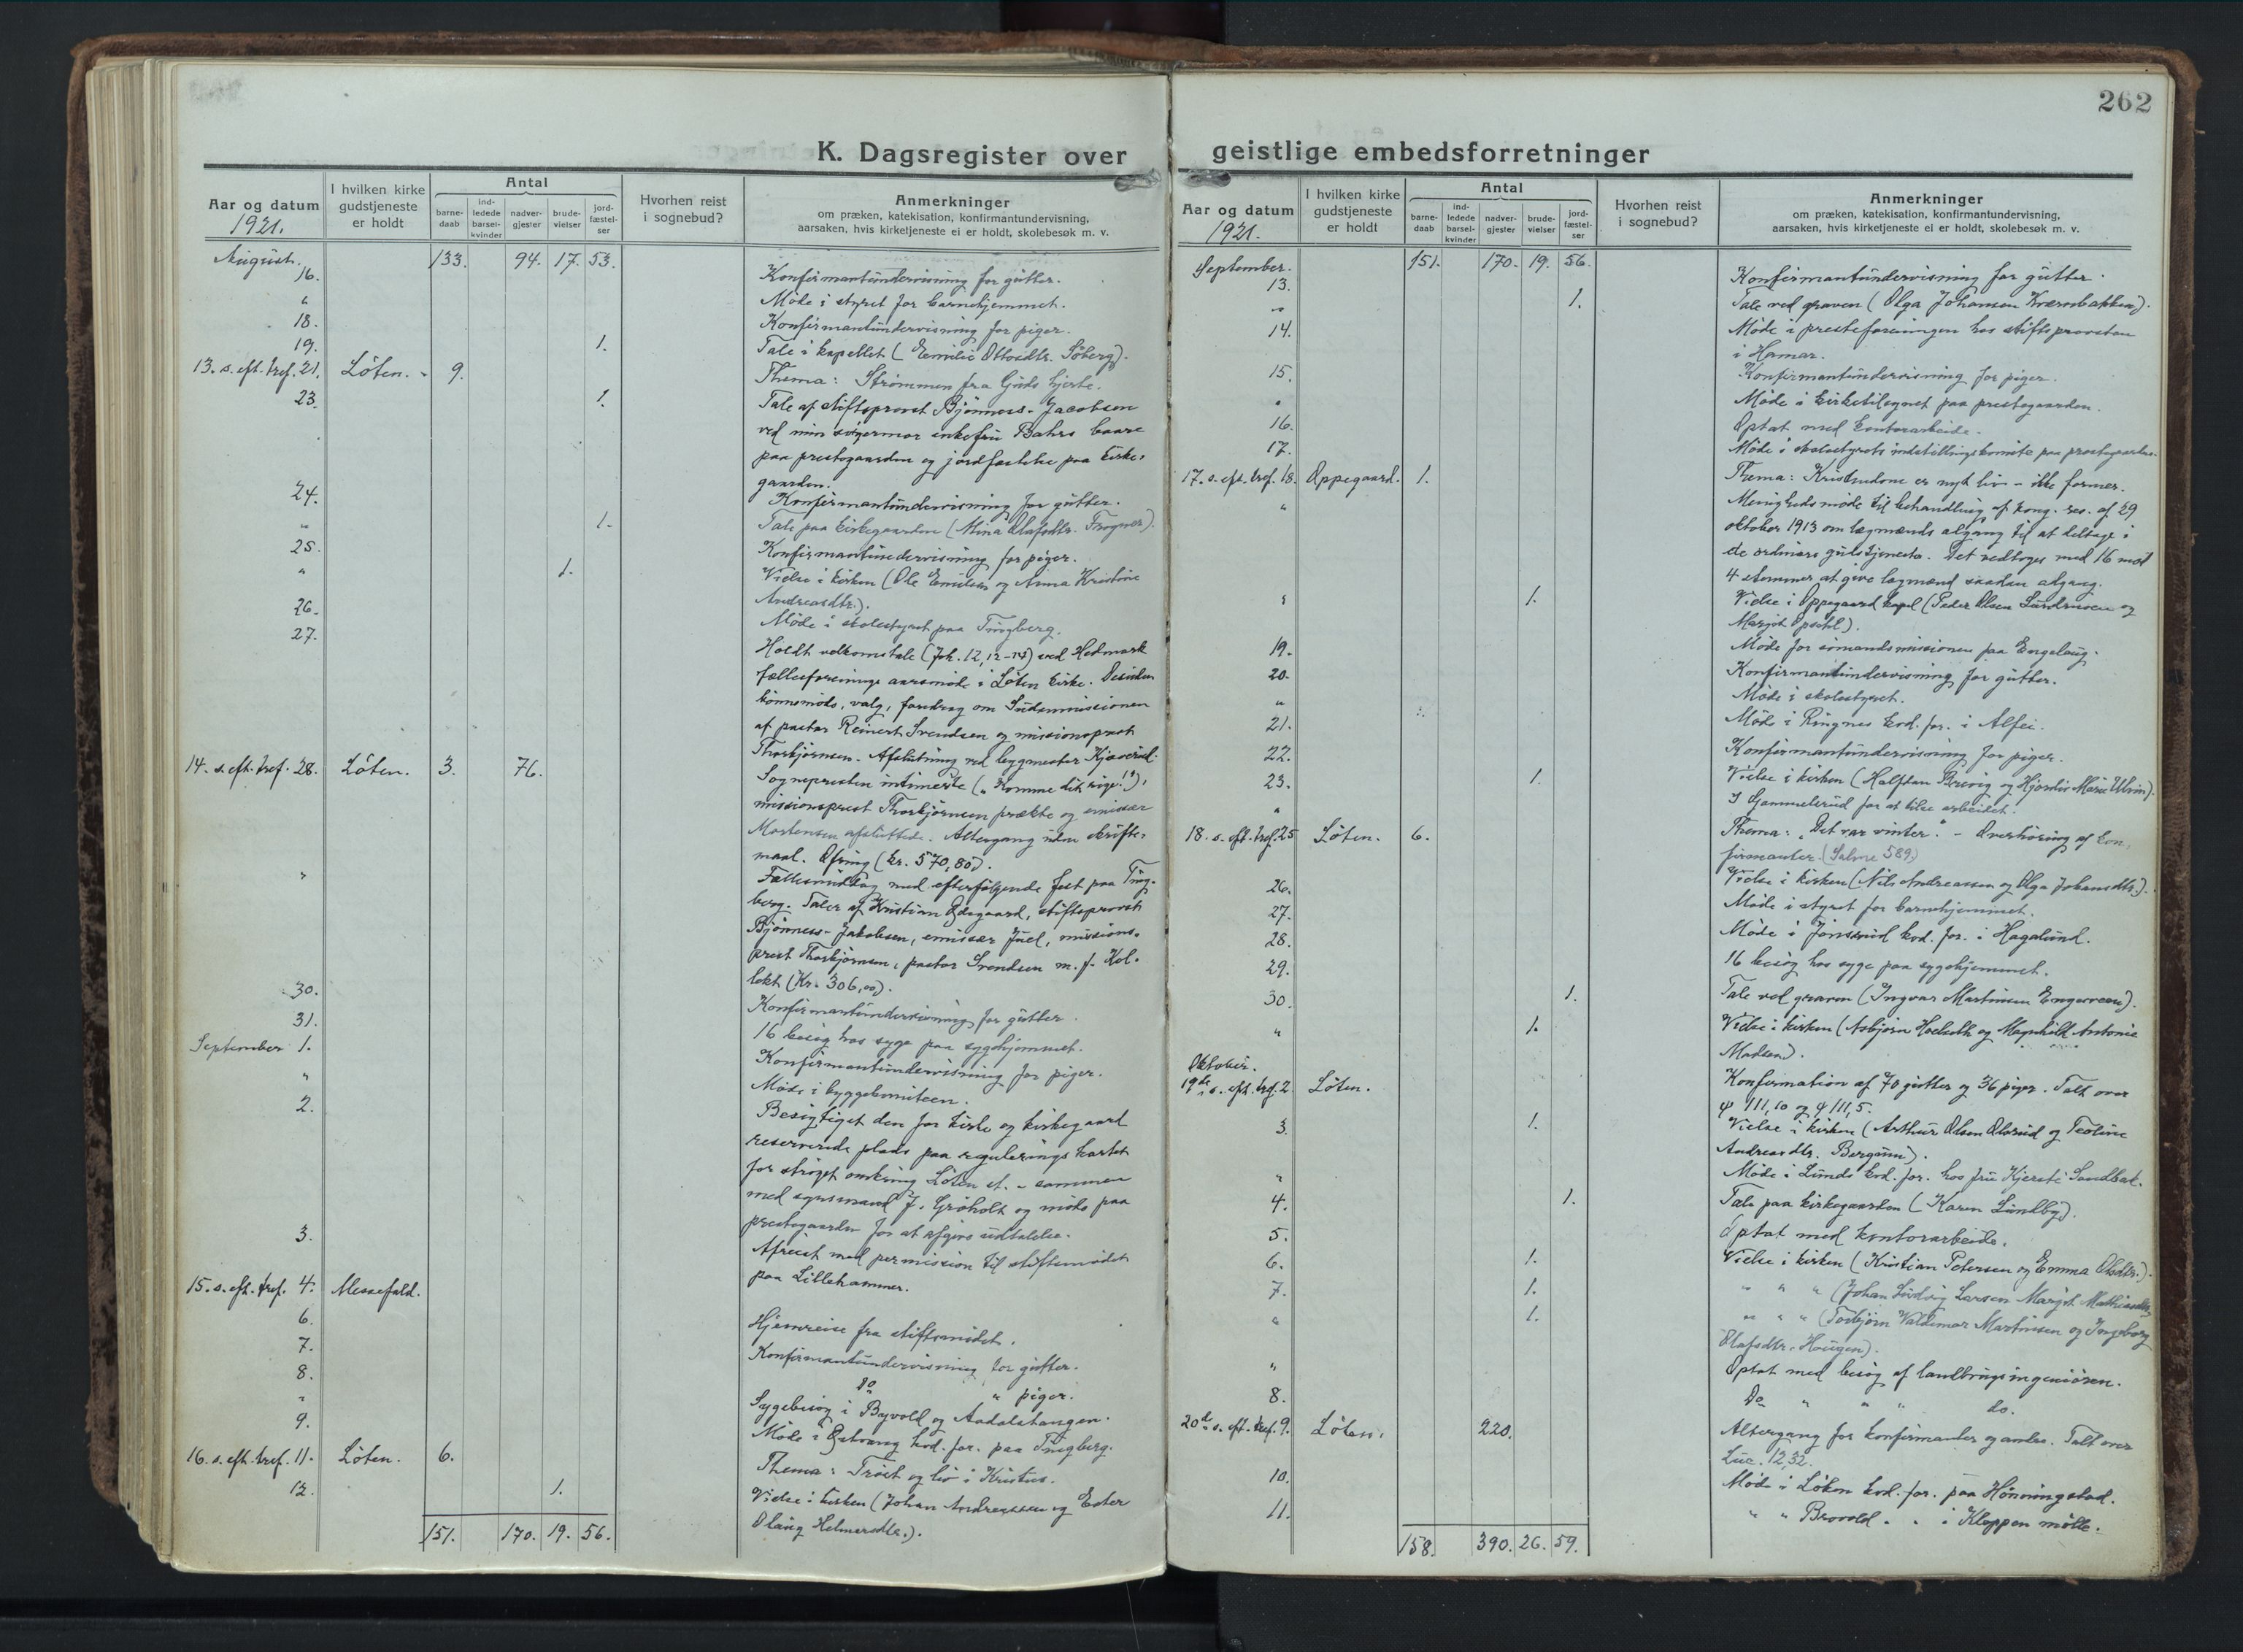 262
K. Dagsregister over
Aar og datum
1921.
I hvilken kirke
gudstjeneste
er holdt
Antal
barne-
daab
ind-
ledede
barsel-
kvinder
nadver-
gjester
brude-
vielser
jord-
fæstel-
ser
Hvorhen reist
i sognebud?
Anmerkninger
om præken, katekisation, konfirmantundervisning,
aarsaken, hvis kirketjeneste ei er holdt, skolebesøk m. v.
August. 133. 94. 17. 53.
16. Konfirmantundervisning for gutter.
" Møde i styret for barnehjemmet.
18. Konfirmantundervisning for piger.
19. 1. Tale i kapellet (Emilie Ottosdtr. Söberg).
13. s. eft. tref. 21. Löten. 9. Thema: Strømmen fra Guds hjerte.
23. 1. Tale af stiftsprovst Bjönness-Jacobsen
ved min svigermor enkefru Bahrs baare
paa prestegaarden og jordfæstelse paa kirke-
gaarden.
24. Konfirmantundervisning for gutter.
" 1. Tale paa kirkegaarden (Mina Olafsdtr. Frogner).
25. Konfirmantundervisning for piger.
" 1. Vielse i kirken (Ole Emilsen og Anna Kristine
Andreasdtr.).
26. Møde i skolestyret paa Tingberg.
27. Holdt velkomstale (Joh. 12, 12-14) ved Hedmark
fællesforenings aarsmøde i Løten kirke. Desuden
bönnemöte, valg, foredrag om Sudanmissionen
af pastor Reinert Svendsen og missionsprest
Thorbjörnsen. Afslutning ved bygmester Kjøsterud.
14. s. eft. tref. 28. Löten. 3. 76. Sognepresten intimerte („Komme dit rige!"),
missionsprest Thorbjörnsen prækte og emissær
Mortensen afsluttede. Altergang uden skrifte-
maal. Ofring (kr. 570,80).
" Fællesmiddag med efterfølgende fest paa Ting-
berg. Taler af Kristian Ødegaard, stiftsprovst
Bjönness-Jakobsen, emissær Juel, missions-
prest Thorbjörnsen, pastor Svendsen m. fl. Kol-
lekt (Kr. 306,00).
30. Konfirmantundervisning for gutter.
31. 16 besøg hos syge paa sygehjemmet.
September 1. Konfirmantundervisning for piger.
" Møde i byggekomiteen.
2. Besigtiget den for kirke og kirkegaard
reserverede plads paa reguleringskartet
for strøget omkring Løten st. - sammen
med synsmand J. Grøholt og møde paa
prestegaarden for at afgive uttalelse.
3. Afreist med permission til stiftsmødet
paa Lillehammer.
15. s. eft. tref. 4. Messefald.
6. Hjemreise fra stiftsmødet.
7. Konfirmantundervisning for gutter.
8. do " piger.
" Sygebesøg i Byvold og Aadalstangen.
9. Møde i Østvang kvd. for. paa Tingberg.
16. s. eft. tref. 11. Löten. 6. Thema: Trøst og liv i Kristus.
12. 1. Vielse i kirken (Johan Andreassen og Ester
Olaug Helmersdtr.).
151. 170. 19. 56.
geistlige embedsforretninger
Aar og datum
1921.
I hvilken kirke
gudstjeneste
er holdt
Antal
barne-
daab
ind-
ledede
barsel-
kvinder
nadver-
gjester
brude-
vielser
jord-
fæstel-
ser
Hvorhen reist
i sognebud?
Anmerkninger
om præken, katekisation, konfirmantundervisning,
aarsaken, hvis kirketjeneste ei er holdt, skolebesøk m. v.
September. 151. 170. 19. 56.
13. Konfirmantundervisning for gutter.
" 1. Tale ved graven (Olga Johansen Kværnbakken).
14. Møde i presteforeningen hos stiftsprovsten
i Hamar.
15. Konfirmantundervisning for piger.
" Møde i kirketilsynet paa prestegaarden.
16. Optat med kontorarbeide.
17. Møde i skolestyrets indstillingskomite paa prestegaarden.
17. s. eft. tref. 18. Oppegaard. 1. Thema: Kristendom er nyt liv - ikke former.
" Menighedsmøde til behandling af kong. res. af 29
oktober 1913 om lægmænds adgang til at deltage i
de ordinære gudstjenester. Det vedtoges med 16 mod
4 stemmer at give lægmænd saadan adgang.
" 1. Vielse i Oppegaard kapel (Peder Olsen Sundmoen og
Margit Opsahl).
19. Møde for sømandsmissionen paa Engelaug.
20. Konfirmantundervisning for gutter.
" Møde i skolestyret.
21. Møde i Ringnes kvd. for. i Alfei.
22. Konfirmantundervisning for piger.
23. 1. Vielse i kirken (Halfdan Brevig og Hjørdis Marie Ulvin).
" I Gammelsrud for at tilse arbeidet.
18. s. eft. tref. 25 Löten. 6. Thema: „Det var vinter." - Overhøring af kon-
firmanter. (Salme 589.)
26. Vielse i kirken (Nils Andreassen og Olga Johansdtr.).
27. Møde i styret for barnehjemmet.
28. Møde i Jønsrud kvd. for. i Hagalund.
29. 16 besøg hos syge paa sygehjemmet.
30. 1. Tale ved graven (Ingvar Martinsen Engerveen).
" 1. Vielse i kirken (Asbjørn Holseth og Magnhild Antonie
Madsen).
Oktober.
19de s. eft. tref. 2. Löten. Konfirmation af 70 gutter og 36 piger. Talt over
ψ 111,10 og ψ 111,5.
3. 1. Vielse i kirken (Arthur Olsen Olsrud og Teoline
Andreasdtr. Bergum).
" Møde i Lunds kvd. for. hos fru Kjersti Sandbak.
4. 1. Tale paa kirkegaarden (Karen Lundby).
5. Optat med kontorarbeide.
6. 1. Vielse i kirken (Kristian Petersen og Emma Olsdtr.).
7. 1. " " " (Johan Ludvig Larsen Margit Mathisdtr.)
" 1. " " " (Torbjörn Valdemar Martinsen og Ingeborg
Olafsdtr. Haugen).
" Optat med besøg af landbrugsingeniøren.
8. Do " " " do.
20de s. eft. tref. 9. Löten. 220. Altergang for konfirmanter og andre. Talt over
Luc. 12,32.
10. Møde i Løken kvd. for. paa Hønningstad.
11. " " Brovold " " i Kloppen mølle.
158. 390. 26. 59.